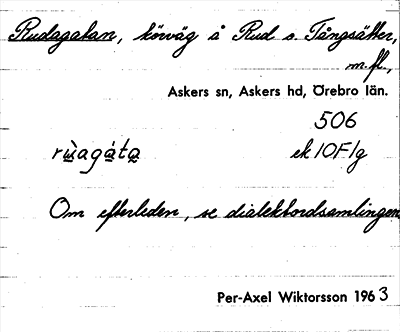 Rudagatan, körväg å Rud o. Tångsätter,
m.fl.,
Askers sn, Askers hd, Örebro län.
506
rùagátą ek 10F1g
Om efterleden, se dialektordsamlingen
Per-Axel Wiktorsson 1963